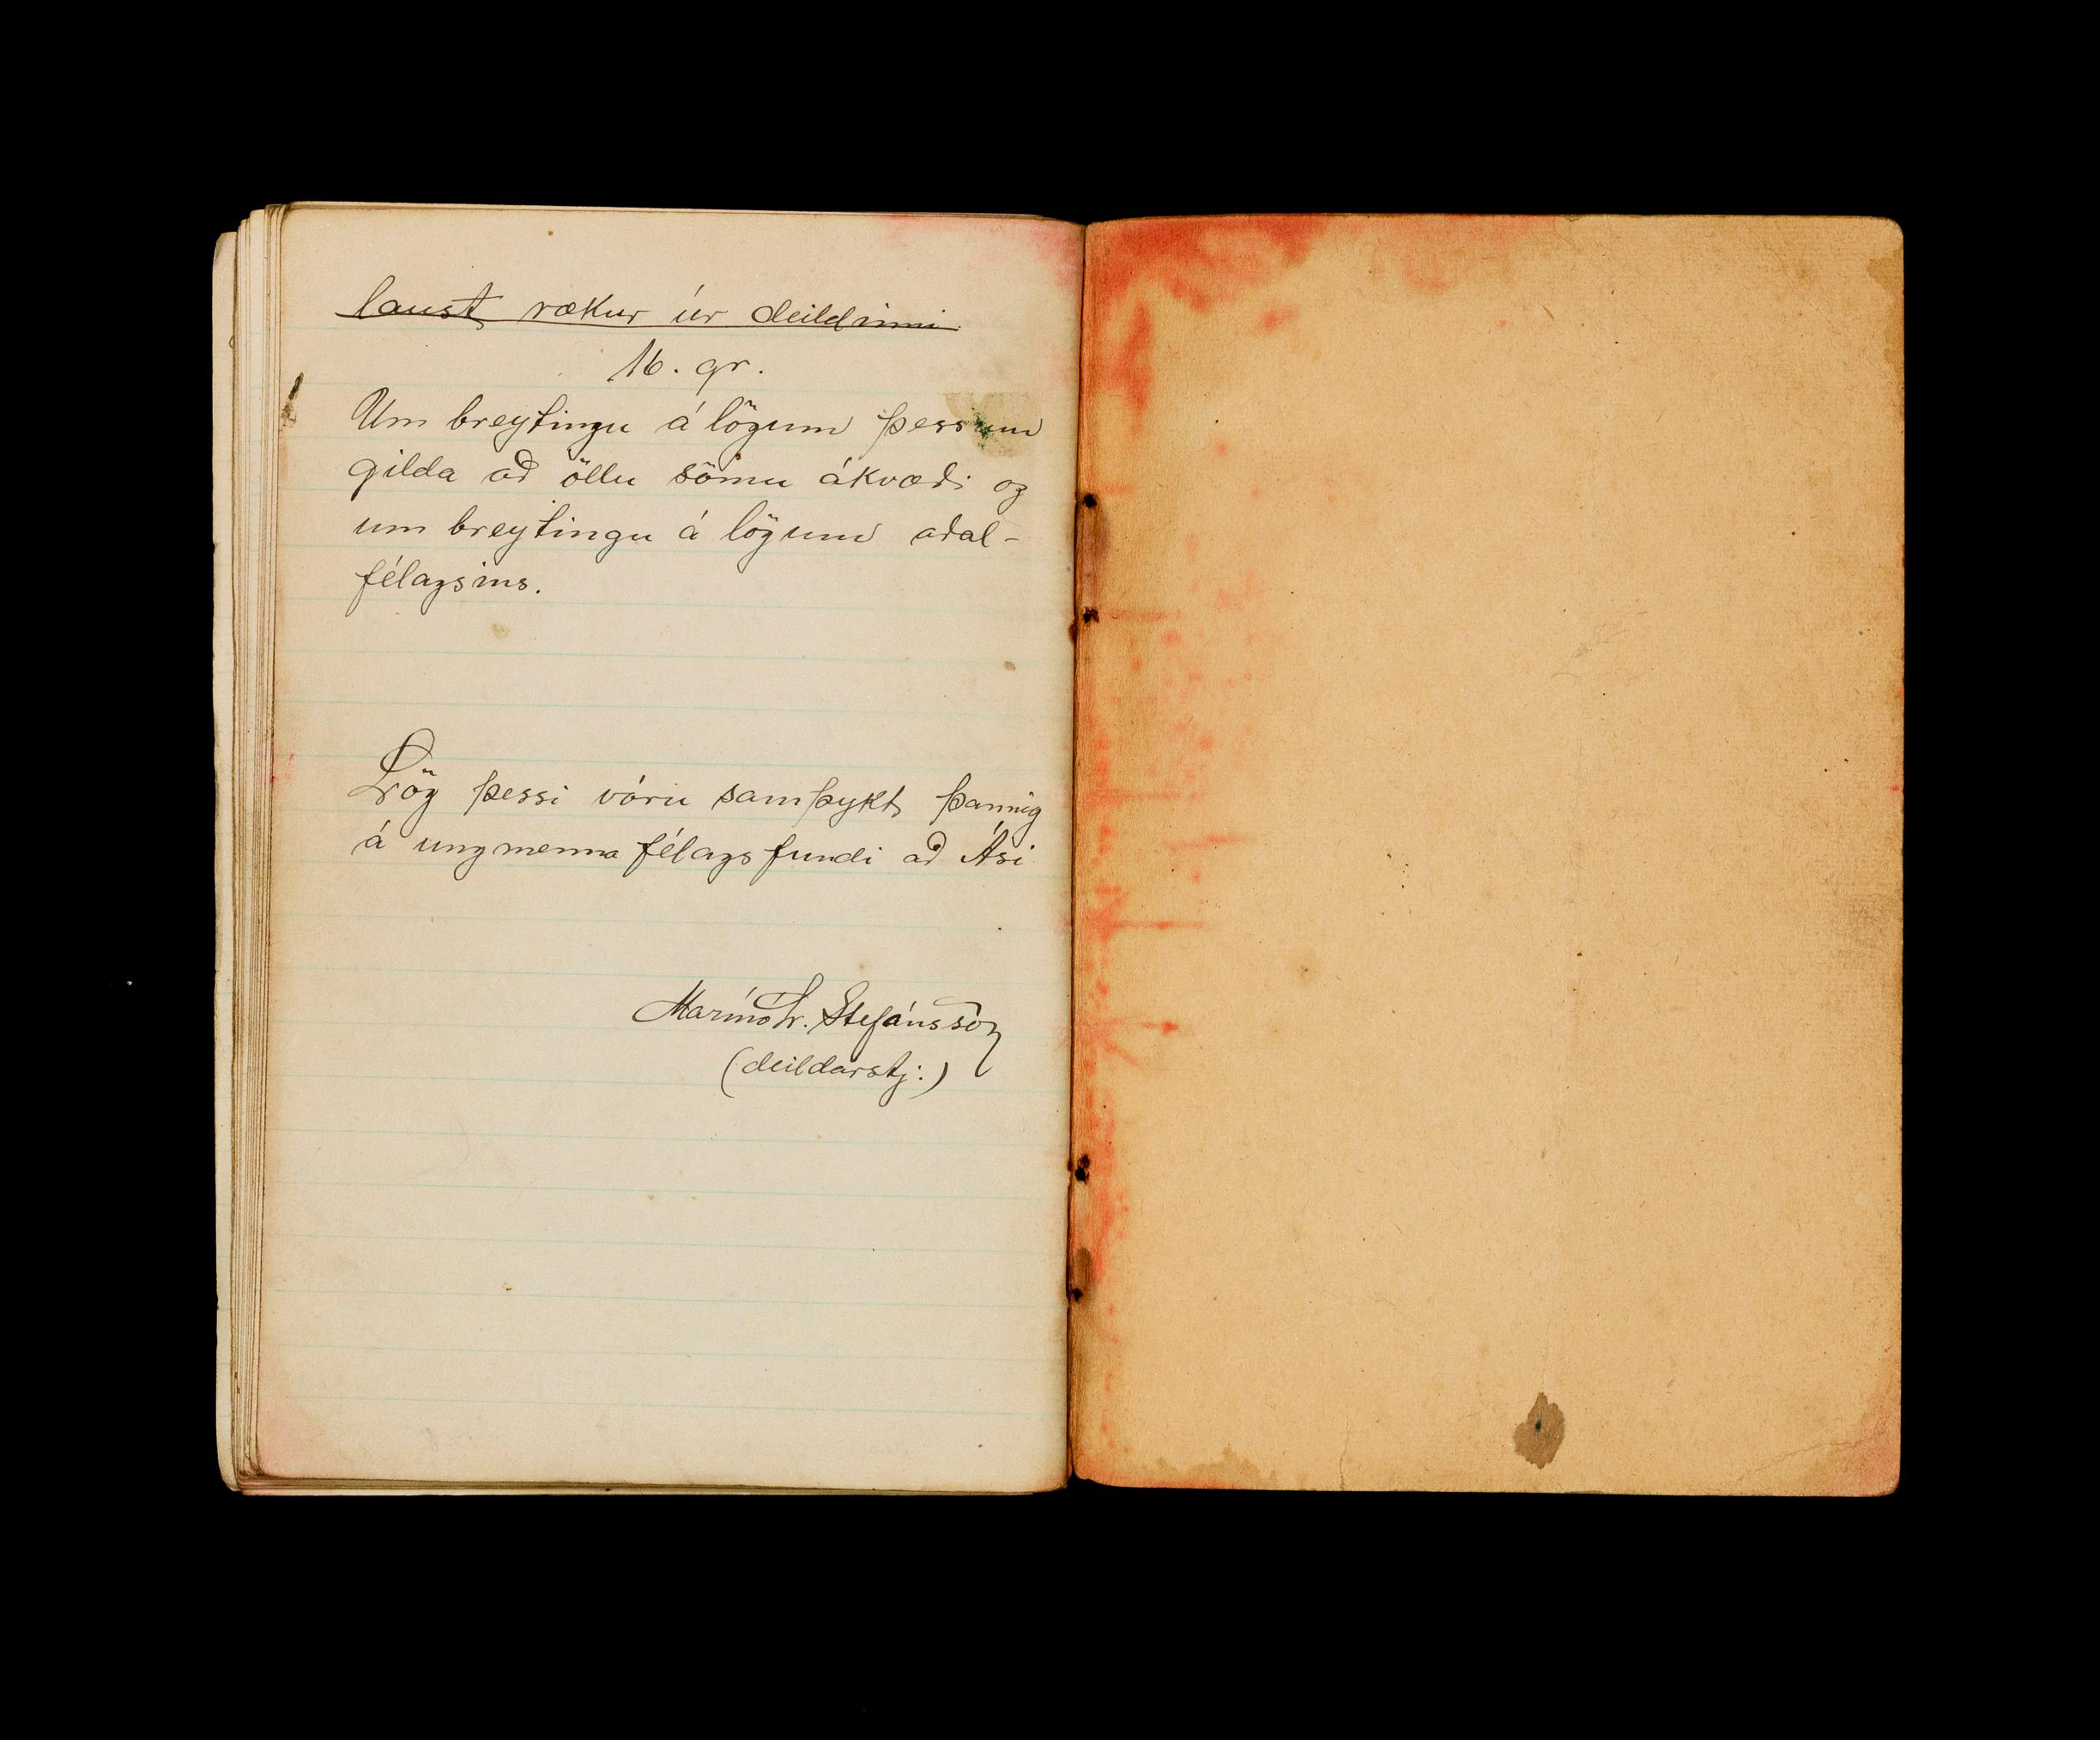 laust rækur úr deildinni.
16. gr.
Um breytingu á lögum þessum
gilda að öllu sömu ákvæði og
um breytingu á lögum aðal-
félagsins.
Lög þessi vóru samþykt þannig
á ungmennafélagsfundi að Ási
Marínó Stefánsson
(deildarstj:)